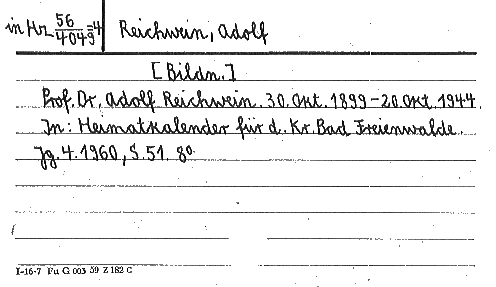 in Hz 56/4049-4 Reichwein, Adolf
[Bildn.]
Prof. Dr. Adolf Reichwein. 30. Okt. 1899-20. Okt. 1944.
In: Heimatkalender für d. Kr. Bad Freienwalde.
Jg. 4. 1960, S. 51. 8°
I-16-7 Fu G 003 59 Z 182 C